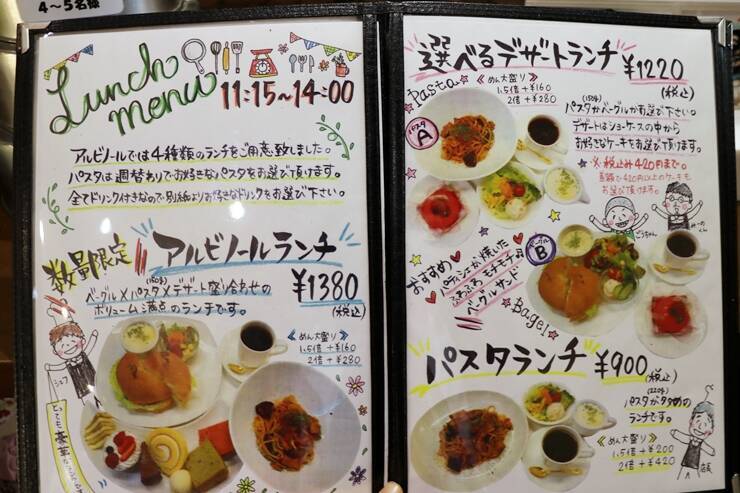 4～5名様
Lunch
menu
11:15～14:00
アルビノールでは4種類のランチをご用意致しました。
パスタは週替わりでお好きなパスタをお選び頂けます。
全てドリンク付きなので別紙よりお好きなドリンクをお選び下さい。
数量限定
アルビノールランチ
¥1380
(税込)
(150g)
ベーグル×パスタ×デザート盛り合わせの
ボリューム満点のランチです。
≪めん大盛り≫
1.5倍 +¥160
2倍 +¥280
シェフ
とっても豪華な
選べるデザートランチ
¥1220
(税込)
Pasta
≪めん大盛り≫
1.5倍 +¥160
2倍 +¥280
パスタ
A
(150g)
パスタかベーグルかお選び下さい。
デザートはショーケースの中から
お好きなケーキをお選び頂けます。
※税込み420円まで。
差額で420円以上のケーキも
お選び頂けます。
おすすめ
パティシエが焼いた
ふわふわモチモチ
ベーグルサンド
Bagel
ベーグル
B
パスタランチ
¥900
(税込)
(220g)
パスタが多めの
ランチです。
≪めん大盛り≫
1.5倍 +¥200
2倍 +¥420
店長